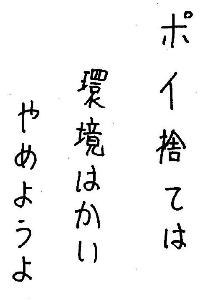 ポイ捨ては
環境はかい
やめようよ